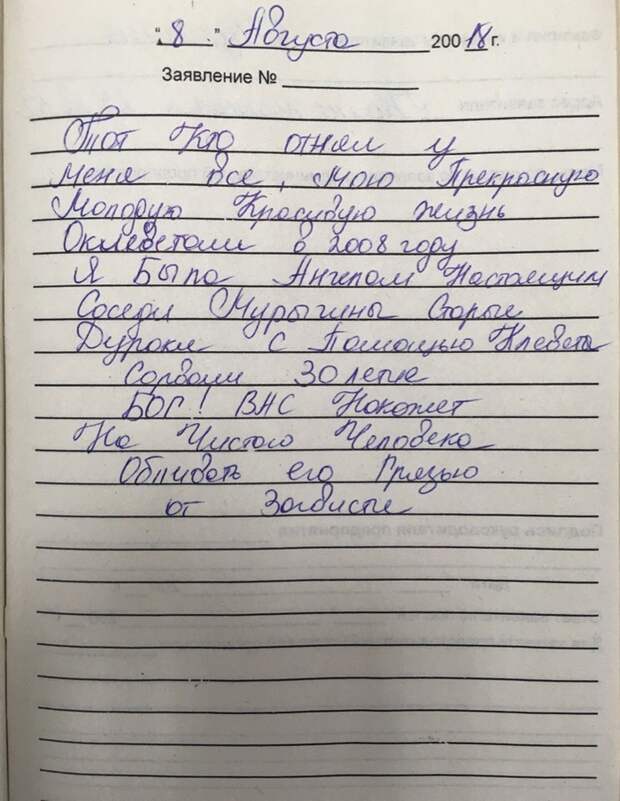 "8." Августа 20018 г.
Заявление №
Тот Кто отнял у
меня все, мою Прекрасную
Молодую Красивую жизнь
Оклеветали в 2008 году
Я Была Ангелом Настоящим
Соседи Мурыгины Старые
Дураки с Помощью Клевета
Сорвали 30 летие
БОГ! ВАС Накажет
На Чистого Человека
Обливать его Грязью
от Зависти